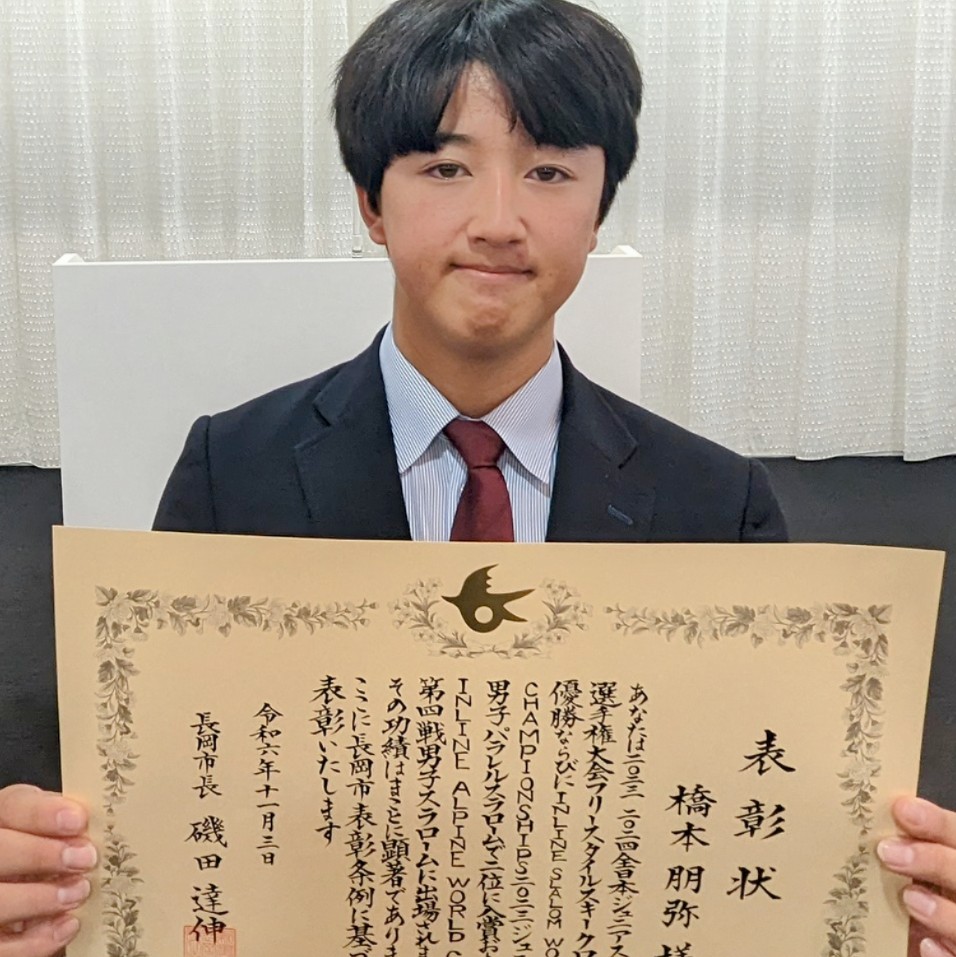 表彰状
橋本朋弥様
あなたは二〇二三 二〇二四全日本ジュニアス
選手権大会フリースタイルスキークロ
優勝ならびにINLINE SLALOM WO
CHAMPIONSHIPS二〇二三ジュ
男子パラレルスラロームで二位に入賞お
INLINE ALPINE WORLD C
第四戦男子スラロームに出場されま
その功績はまことに顕著でありま
ここに長岡市表彰条例に基づ
表彰いたします
令和六年十一月三日
長岡市長 磯田達伸